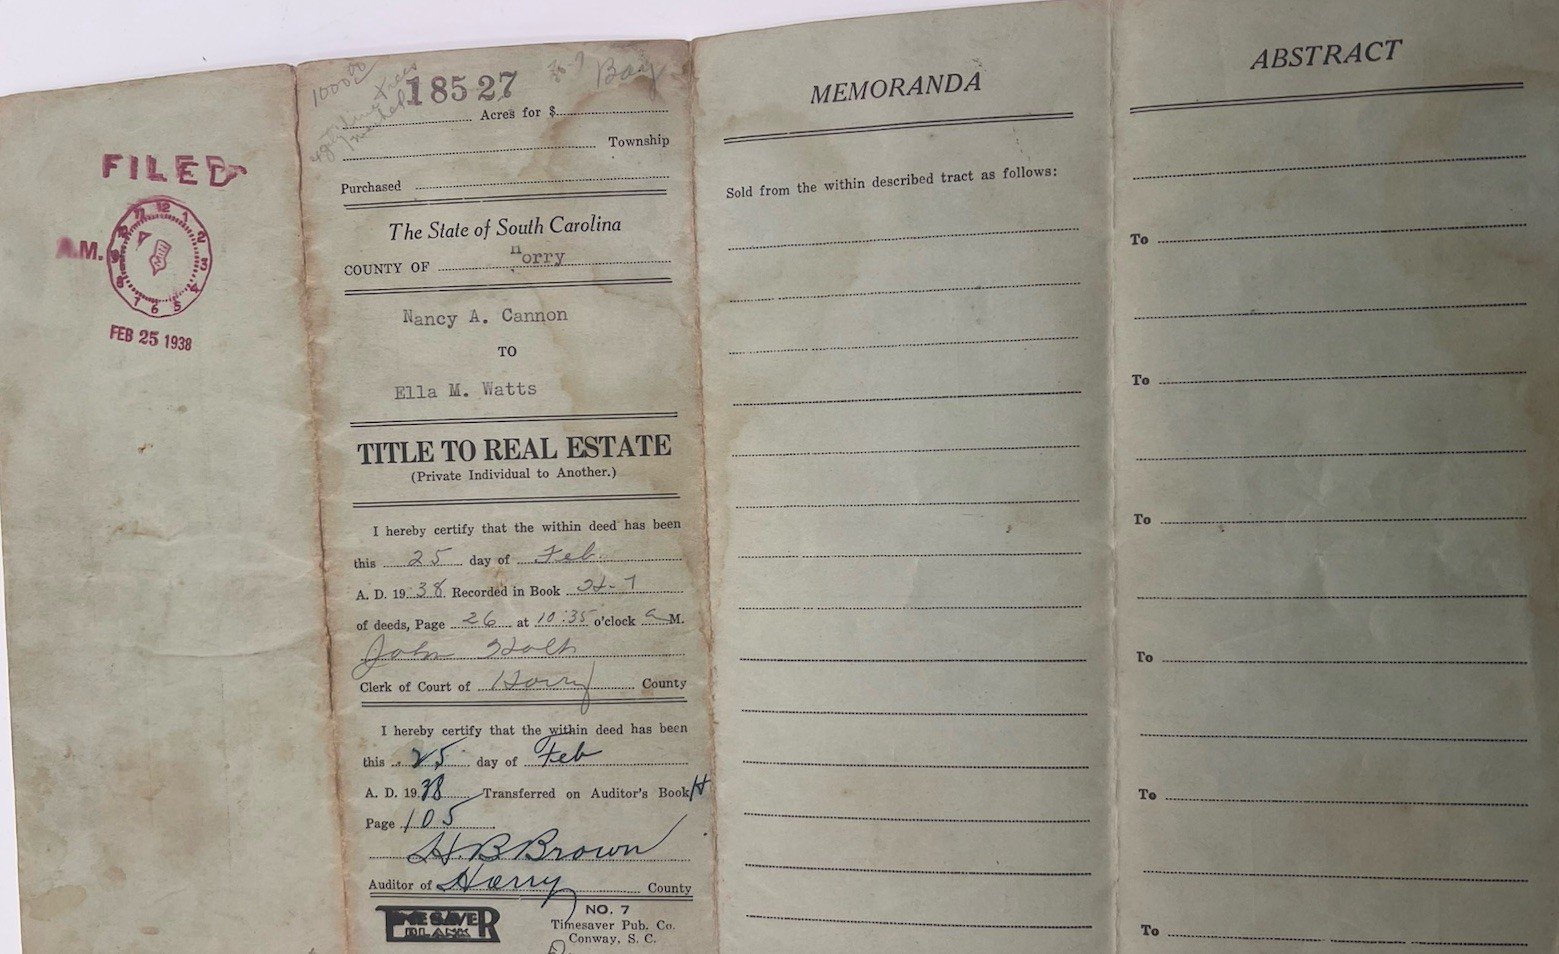 FILED
A.M.
12 1 2 3 4 5 6 7 8 9 10 11
FEB 25 1938
10000
18527
Bay
Acres for $
Township
Purchased
The State of South Carolina
COUNTY OF Horry
Nancy A. Cannon
TO
Ella M. Watts
TITLE TO REAL ESTATE
(Private Individual to Another.)
I hereby certify that the within deed has been
this 25 day of Feb.
A. D. 1938 Recorded in Book H-7
of deeds, Page 26 at 10:35 o'clock a M.
John Holt
Clerk of Court of Horry County
I hereby certify that the within deed has been
this 25 day of Feb
A. D. 1938 Transferred on Auditor's Book H
Page 105
H. B Brown
Auditor of Horry County
TIMESAVER
BLANK
NO. 7
Timesaver Pub. Co.
Conway, S. C.
MEMORANDA
Sold from the within described tract as follows:
ABSTRACT
To
To
To
To
To
To